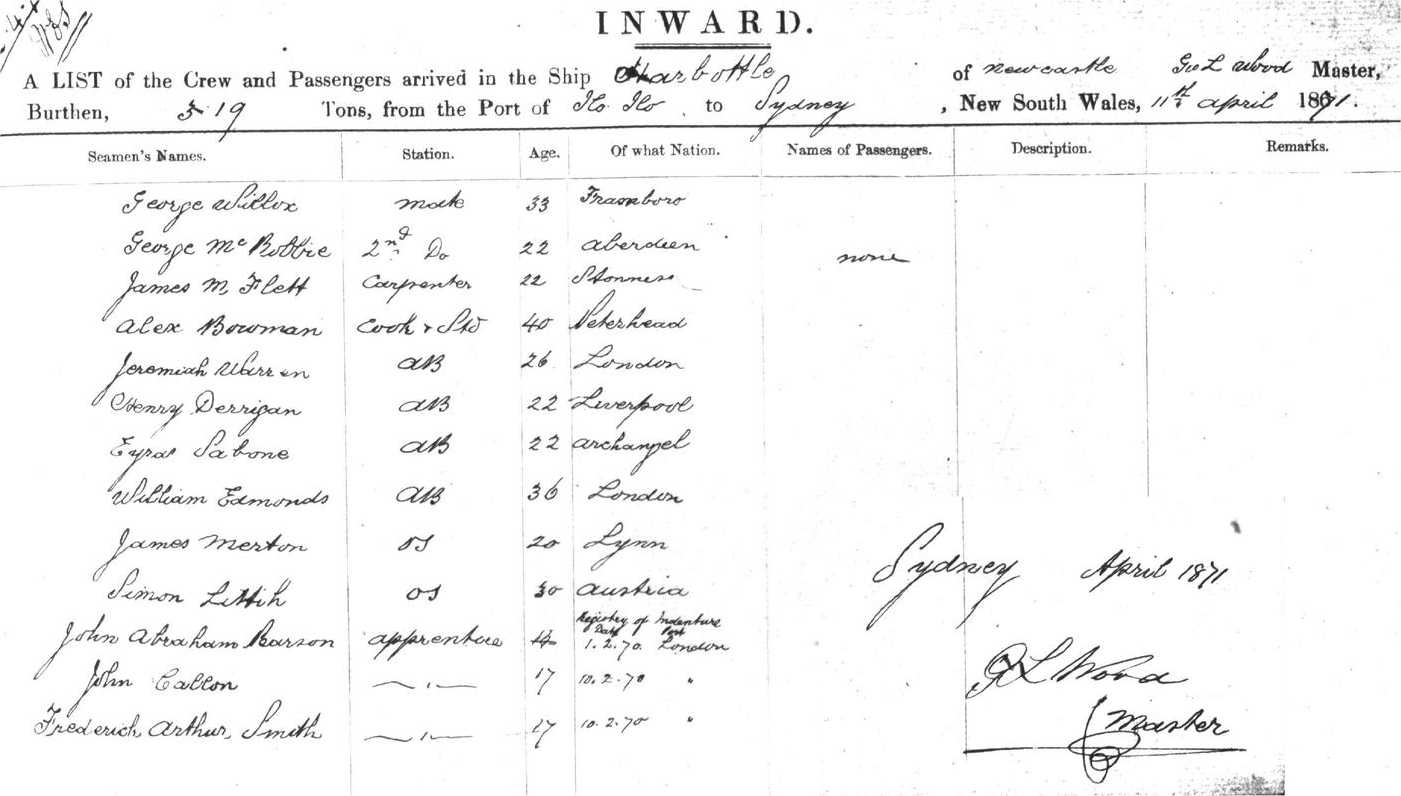 INWARD.
A LIST of the Crew and Passengers arrived in the Ship Harbottle of Newcastle Geo L Wood Master,
Burthen, 319 Tons, from the Port of Ilo Ilo to Sydney, New South Wales, 11th April 1871.
Seamen's Names. Station. Age. Of what Nation. Names of Passengers. Description. Remarks.
George Willox mate 33 Framboro
George McRobbie 2nd Do 22 Aberdeen none
James M Flett Carpenter 22 Stonness
Alex Bowman Cook & Std 40 Peterhead
Jeremiah Warren AB 26 London
Henry Derrigan AB 22 Liverpool
Eyras Sabone AB 22 Archangel
William Edmonds AB 36 London
James Merton OS 20 Lynn
Simon Lettih OS 30 Austria
Registry of Indenture
Date Port
John Abraham Barson apprentice 1.2.70. London
John Callon 17 10.2.70 "
Frederich Arthur Smith 17 10.2.70 "
Sydney April 1871
G L Wood
Master